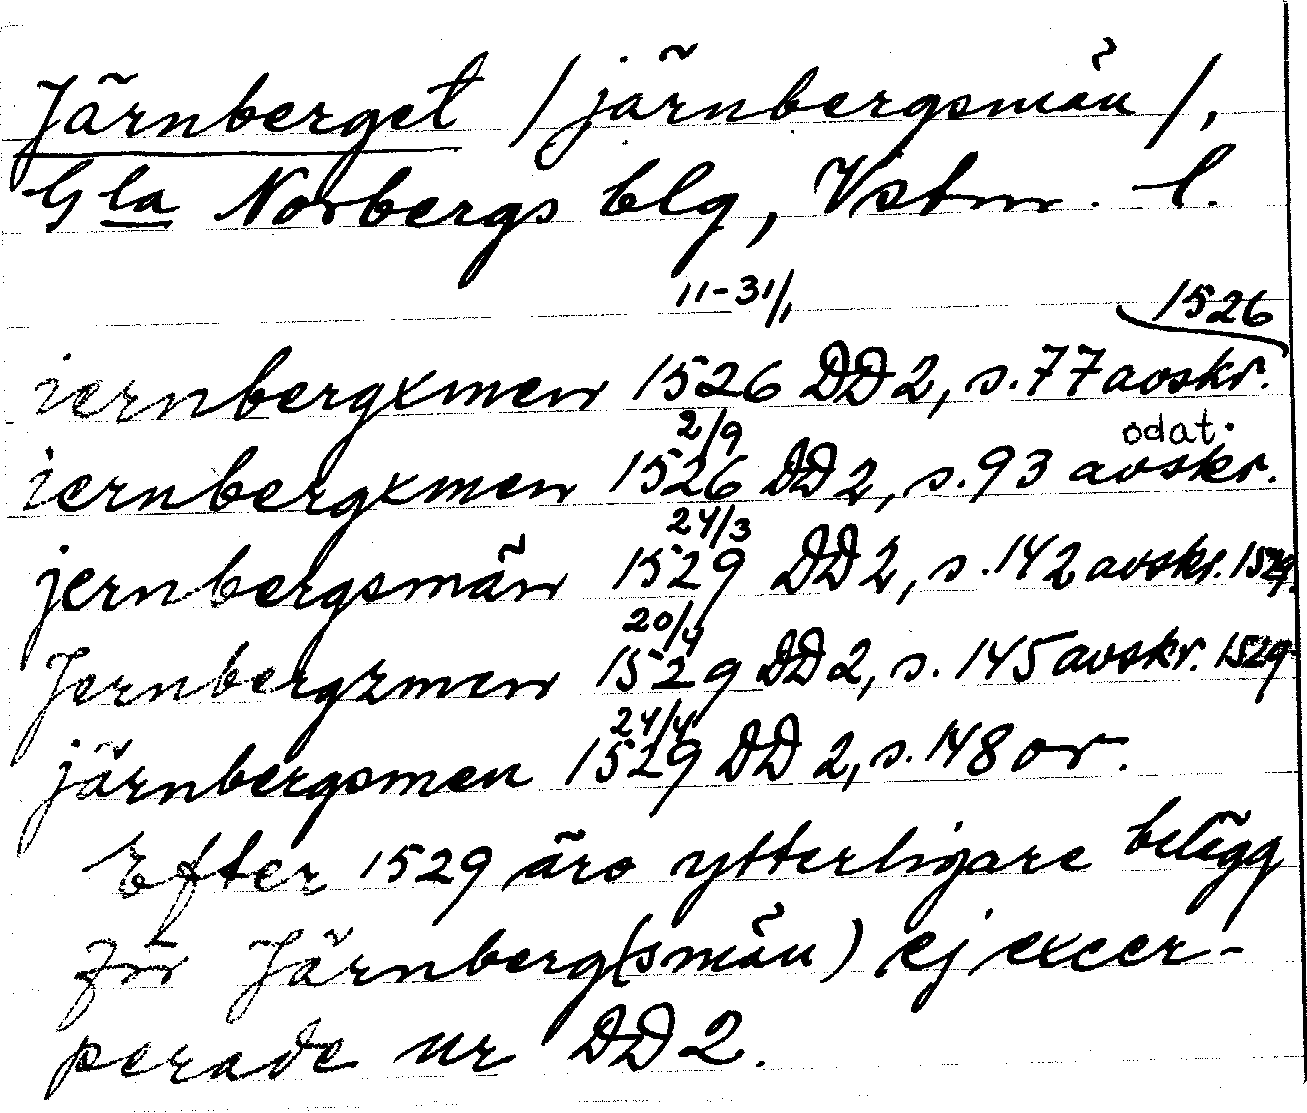 Järnberget /järnbergsmän/,
Gla Norbergs blg, Vstm. l.
11-31/1 1526
iernbergxmen 1526 DD 2, s. 77 avskr.
2/9 odat.
iernbergxmen 1526 DD 2, s. 93 avskr.
24/3
jernbergsmän 1529 DD 2, s. 142 avskr. 1529.
20/4
Jernbergzmen 1529 DD 2, s. 145 avskr. 1529.
24/4
järnbergsmen 1529 DD 2, s. 148 or.
Efter 1529 äro ytterligare belägg
för Järnberg(smän) ej excer-
perade ur DD 2.